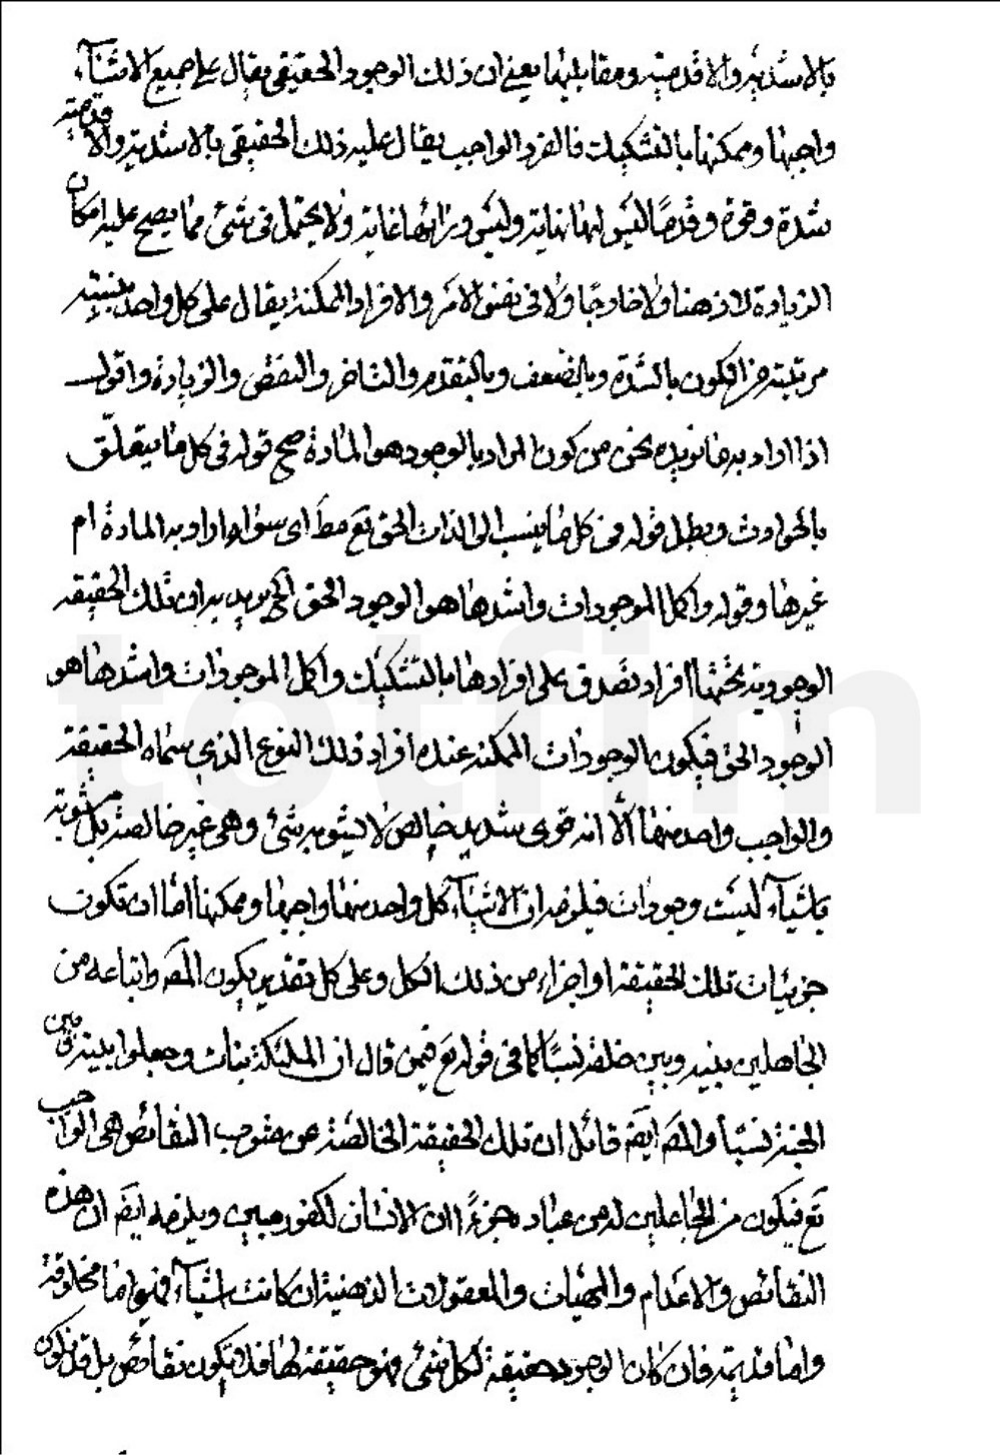 بالاشدية والاقدمية ومقابليهما يعني ان ذلك الوجود الحقيقي يقال على جميع الاشياء
واجبها وممكنها بالتشكيك فالفرد الواجب يقال عليه ذلك الحقيقي بالاشدية والاقدمية
شدة وقوة وقدما ليس لها نهاية وليس وراءها غاية ولا يحتمل في شئ مما يصح عليه امكان
الزيادة لا ذهنا ولا خارجا ولا في نفس الامر والافراد الممكنة يقال على كل واحد بنسبة
مرتبته من الكون بالشدة وبالضعف وبالتقدم والتاخر والنقص والزيادة واقول
اذا اراد به ما نريده نحن من كون المراد بالوجود هو المادة صح قوله في كل ما يتعلق
بالحوادث وبطل قوله في كل ما ينسب الى الذات الحق تع مط اى سواء اراد به المادة ام
غيرها وقوله واكمل الموجودات واشدها هو الوجود الحق الخ يريد به ان تلك الحقيقة
الوجودية تحتها افراد تصدق على افرادها بالتشكيك واكمل الموجودات واشدها هو
الوجود الحق فيكون الوجودات الممكنة عنده افراد ذلك النوع الذي سماه الحقيقة
والواجب واحد منها الا انه قوى شديد خالص لا يشوبه شئ وهى غير خالصة بل مشوبة
باشياء ليست وجودات فيلزمه ان الاشياء كل واحد منها واجبها وممكنها اما ان تكون
جزئيات تلك الحقيقة او اجزاء من ذلك الكل وعلى كل تقدير يكون المصَ واتباعه من
الجاهلين بينه وبين خلقه نسبًا كما في قوله تع فيمن قال ان الملئكة بنات وجعلوا بينه وبين
الجنة نسبًا والمصَ ايضَ قائل ان تلك الحقيقة الخالصة عن شوب النقائص هى الواجب
تع فيكون من الجاعلين له من عباده جزءًا ان الانسان لكفور مبين ويلزمه ايضَ ان هذه
النقائص والاعدام والمهيات والمعقولات الذهنية ان كانت اشياء فهى اما مخلوقة
واما قديمة فان كان الوجود حقيقة لكل شئ فهو حقيقة لها فلا تكون نقائص بل قد تكون
totfim